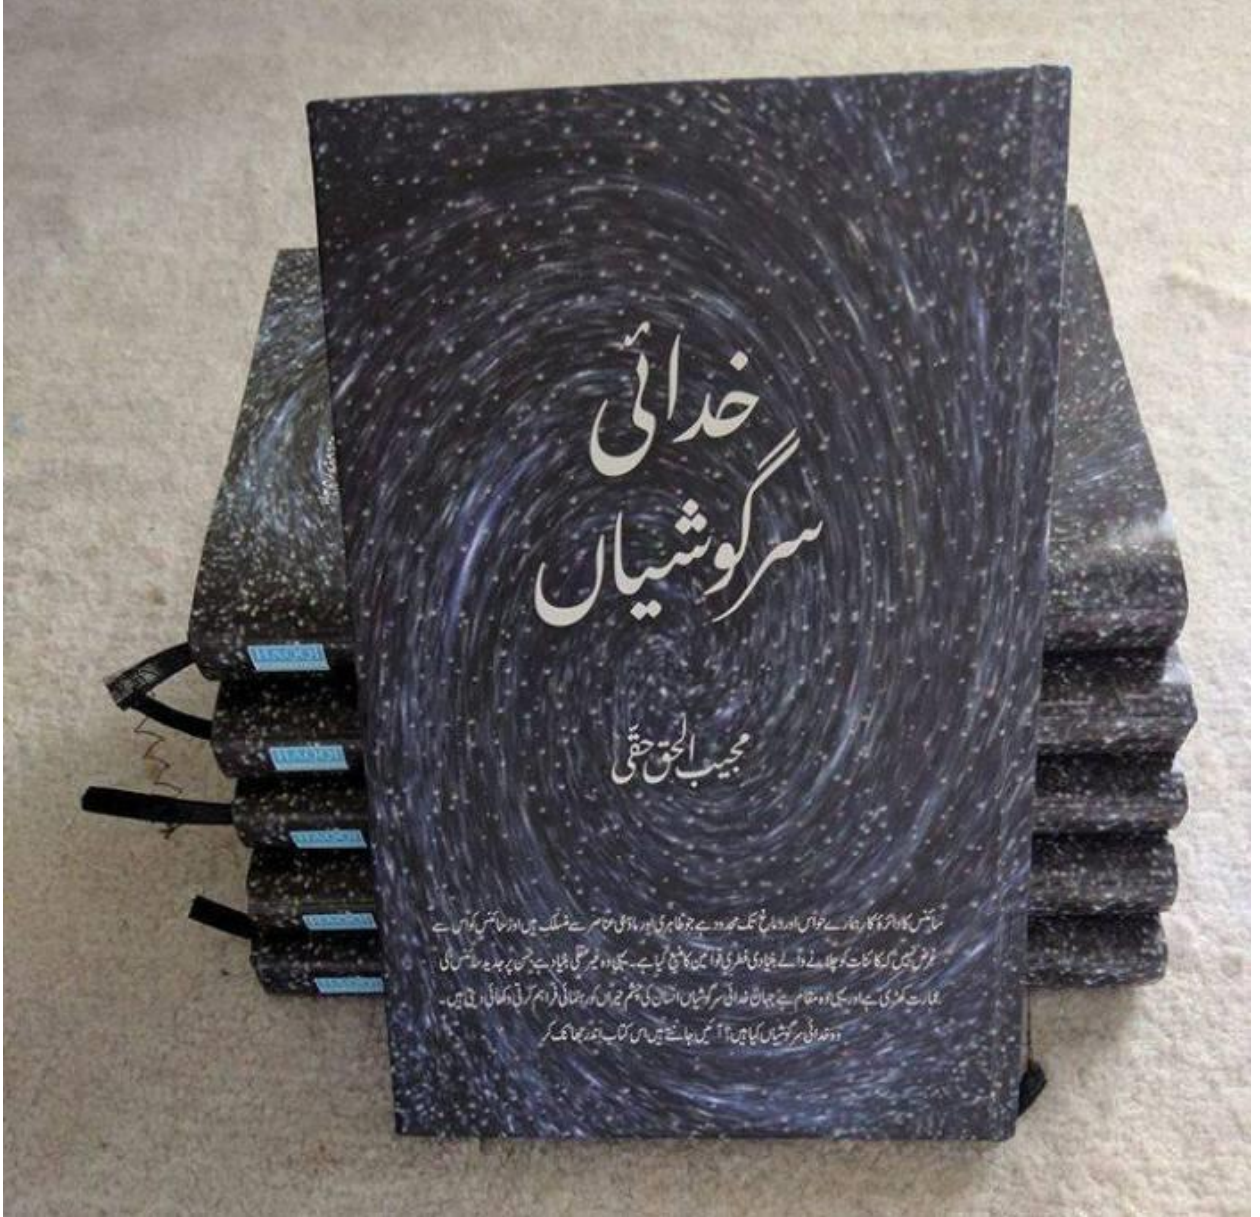 خدائی
سرگوشیاں
مجیب الحق حقّی
سائنس کا دائرۂ کار ہمارے حواس اور دماغ تک محدود ہے جو ظاہری اور مادّی عناصر سے منسلک ہیں اور سائنس کو اس سے
غرض نہیں کہ کائنات کو چلانے والے بنیادی فطری قوانین کا منبع کیا ہے۔ یہی وہ غیر عقلی بنیاد ہے جس پر جدید سائنس کی
عمارت کھڑی ہے اور یہی وہ مقام ہے جہاں خدائی سرگوشیاں انسان کی چشم حیراں کو رہنمائی فراہم کرتی دکھائی دیتی ہیں۔
وہ خدائی سرگوشیاں کیا ہیں؟ آئیں جانتے ہیں اس کتاب اندر جھانک کر
HAQQI
HAQQI
HAQQI
HAQQI
HAQQI